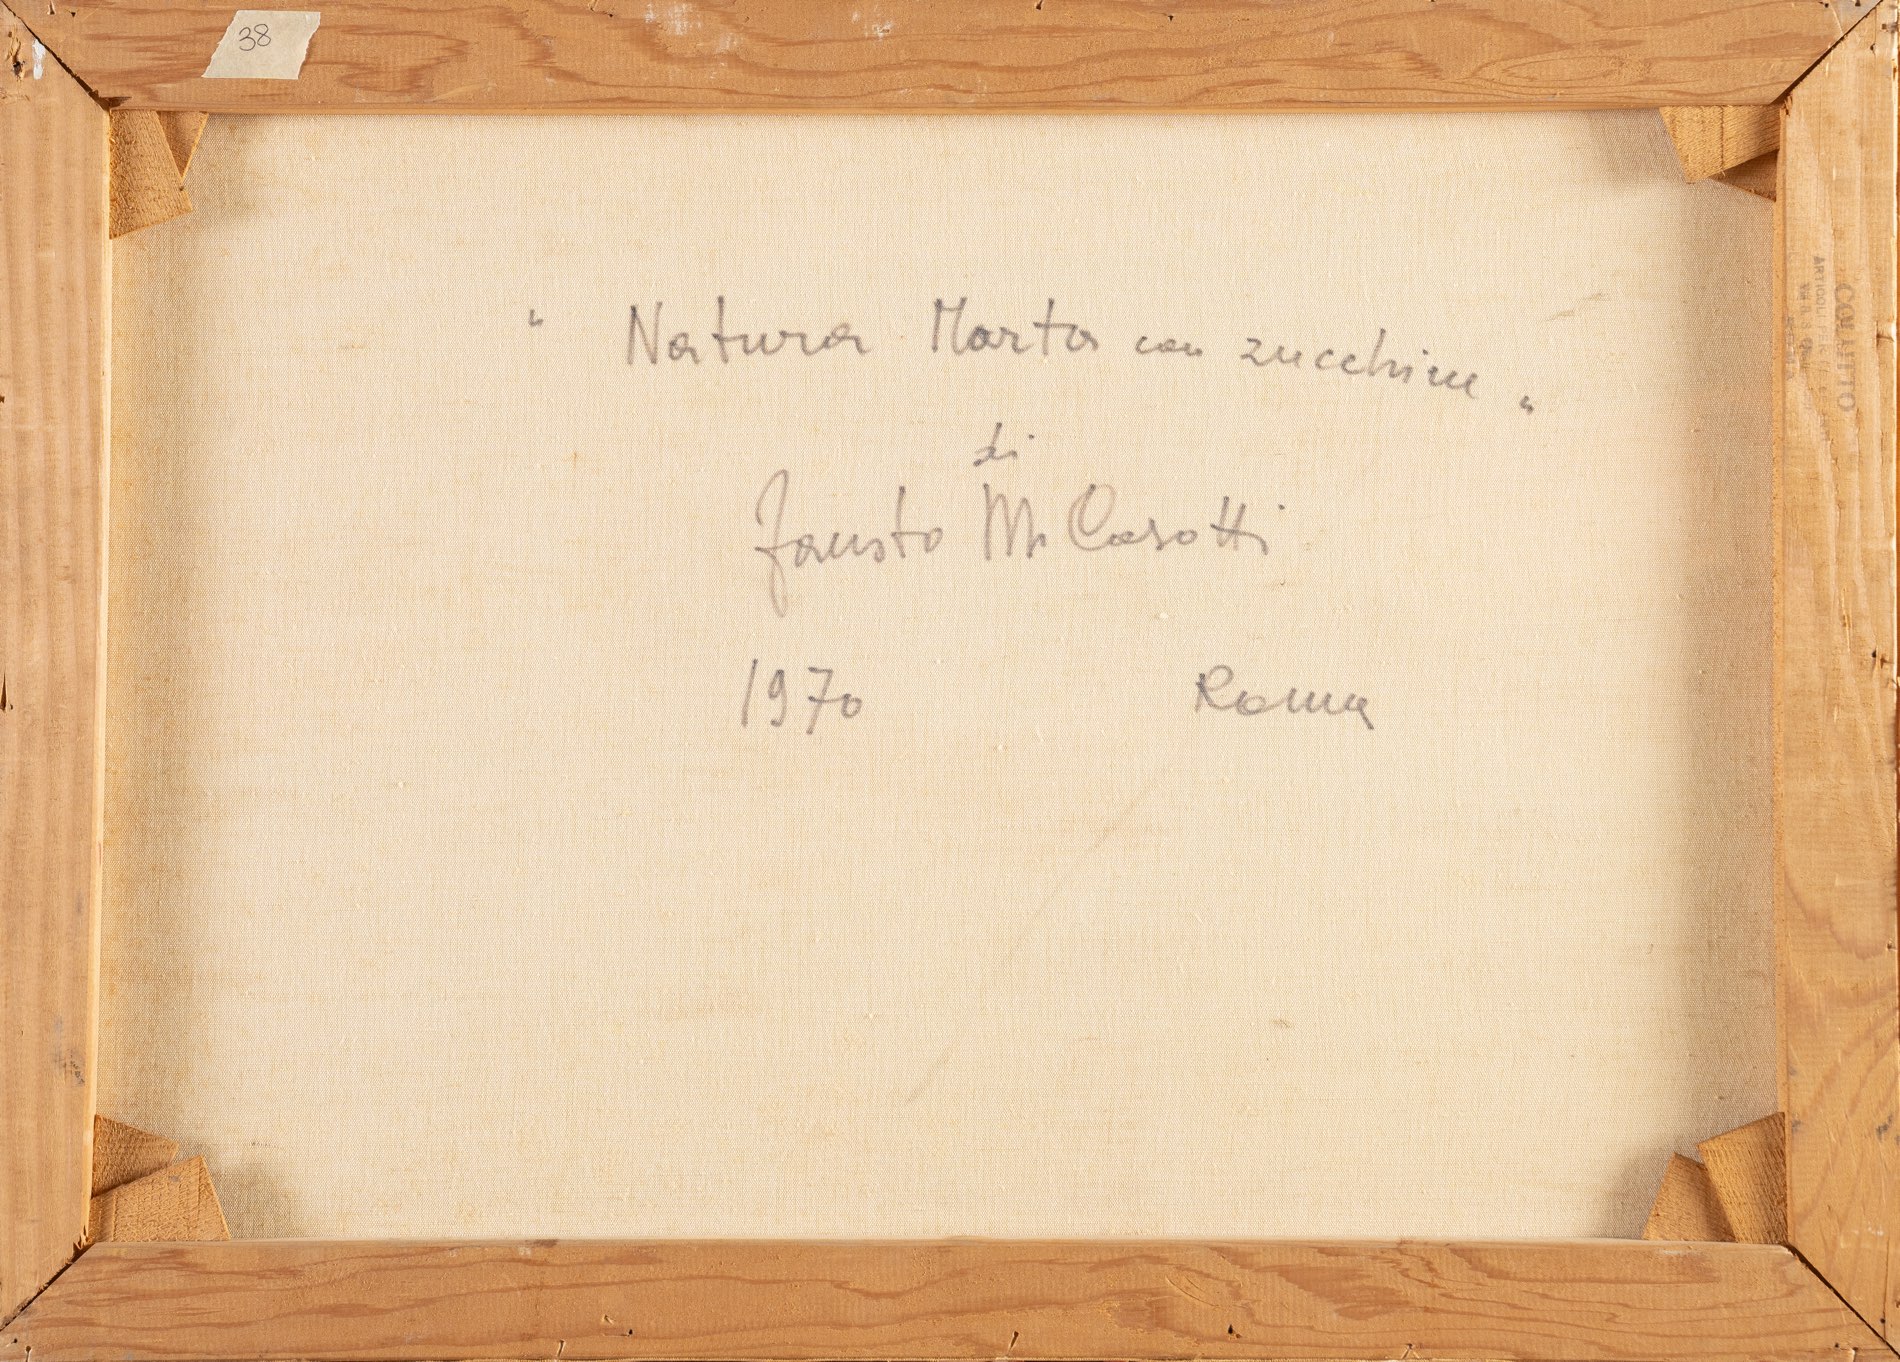 38
" Natura Morta con zucchine "
di
Fausto M. Casotti
1970 Roma
ARTICOLI